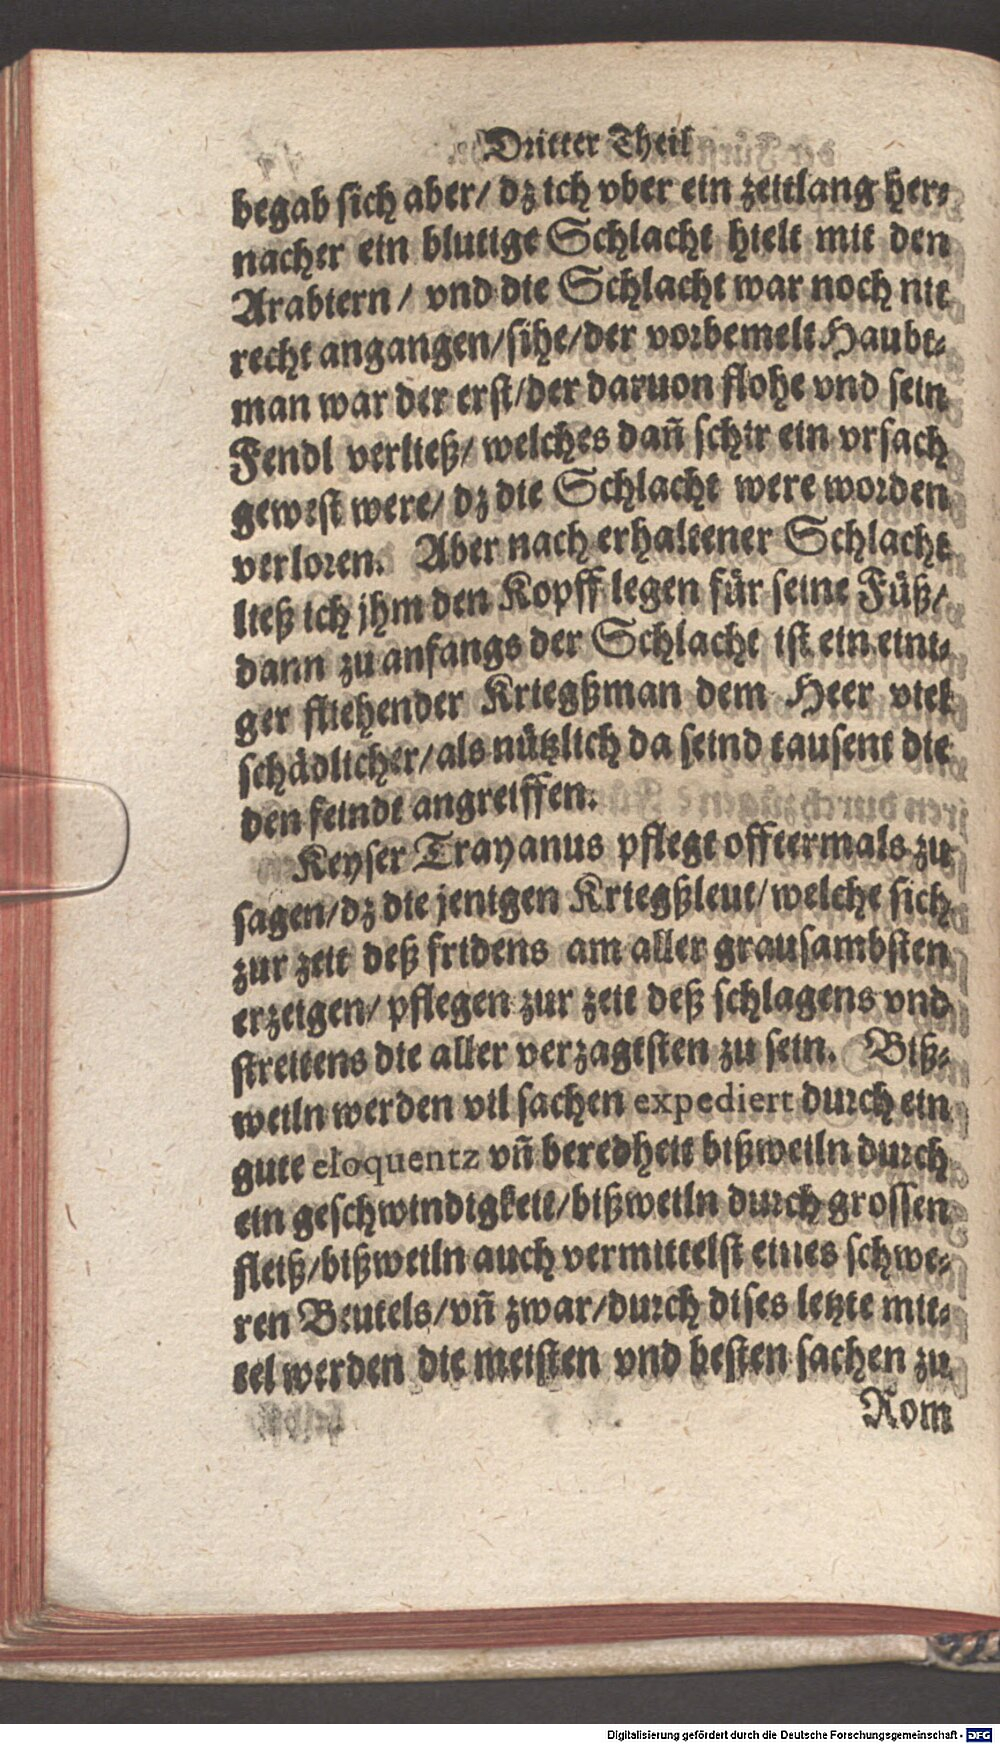 Dritter Theil
begab sich aber/ dz ich vber ein zeitlang her-
nacher ein blutige Schlacht hielt mit den
Arabiern / vnd die Schlacht war noch nit
recht angangen/sihe/der vorbemelt Haubt-
man war der erst/der daruon flohe vnd sein
Fendl verließ/ welches dañ schir ein vrsach
gewest were/ dz die Schlacht were worden
verloren. Aber nach erhaltener Schlacht
ließ ich jhm den Kopff legen für seine Füß/
dann zu anfangs der Schlacht ist ein eini-
ger fliehender Kriegßman dem Heer viel
schädlicher/als nützlich da seind tausent die
den feindt angreiffen.
Keyser Trayanus pflegt offtermals zu
sagen/dz die jenigen Kriegßleut/welche sich
zur zeit deß fridens am aller grausambsten
erzeigen/ pflegen zur zeit deß schlagens vnd
streitens die aller verzagtsten zu sein. Biß-
weiln werden vil sachen expediert durch ein
gute eloquentz vñ beredheit bißweiln durch
ein geschwindigkeit/bißweiln durch grossen
fleiß/bißweiln auch vermittelst eines schwe-
ren Beutels/vñ zwar/durch dises letzte mit-
tel werden die meisten vnd besten sachen zu
Rom
Digitalisierung gefördert durch die Deutsche Forschungsgemeinschaft - DFG